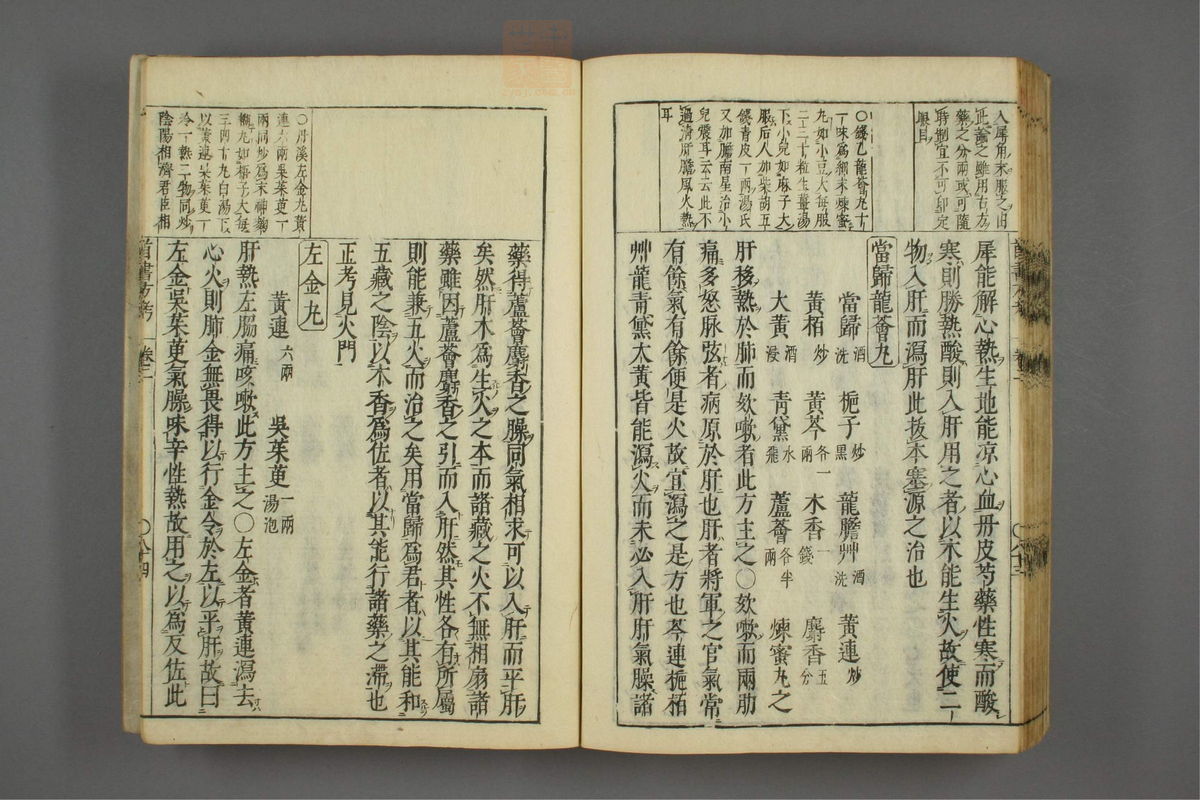 入犀角末服之旧
正論之雖用古方
藥之分兩或可隨
時制宜不可印定
眼目
犀能解心熱生地能凉心血丹皮芍藥性寒而酸
寒則勝熱酸則入肝用之者以木能生火故使二
物入肝而瀉肝此拔本塞源之治也
〇錢乙龍薈丸十
一味爲細末煉蜜
丸如小豆大每服
二三十粒生薑湯
下小兒如麻子大
服后人加柴胡五
錢青皮一兩湯氏
又加膽南星治小
兒驚耳云云此不
過清肝膽風火熱
耳
當歸龍薈丸
當歸 酒洗 梔子 炒黑 龍膽艸 酒洗 黃連 炒
黃栢 炒 黃芩 各一兩 木香 一錢 麝香 五分
大黃 酒浸 青黛 水飛 蘆薈 各半兩 煉蜜丸之
肝移熱於肺而欬嗽者此方主之〇欬嗽而兩肋
痛多怒脉弦者病原於肝也肝者將軍之官氣常
有餘氣有餘便是火故宜瀉之是方也芩連梔栢
艸龍青黛大黃皆能瀉火而未必入肝肝氣臊諸
藥得蘆薈麝香之臊同氣相求可以入肝而平肝
矣然肝木爲生火之本而諸藏之火不無相扇諸
藥雖因蘆薈麝香之引而入肝然其性各有所屬
則能兼五火而治之矣用當歸爲君者以其能和
五藏之陰以木香爲佐者以其能行諸藥之滯也
正考見火門
左金丸
黃連 六兩 吳茱萸 一兩湯泡
〇丹溪左金丸黃
連六兩吳茱萸一
兩同炒爲末神麴
糊丸如梧子大每
三四十丸白湯下
以黃連吳茱萸一
冷一熱二物同炒
陰陽相濟君臣相
肝熱左脇痛咳嗽此方主之〇左金者黃連瀉去
心火則肺金無畏得以行金令於左以平肝故曰
左金吳茱萸氣臊味辛性熱故用之以爲反佐此
醫書方考 卷二 〇八十三
醫書方考 卷二 〇八十四